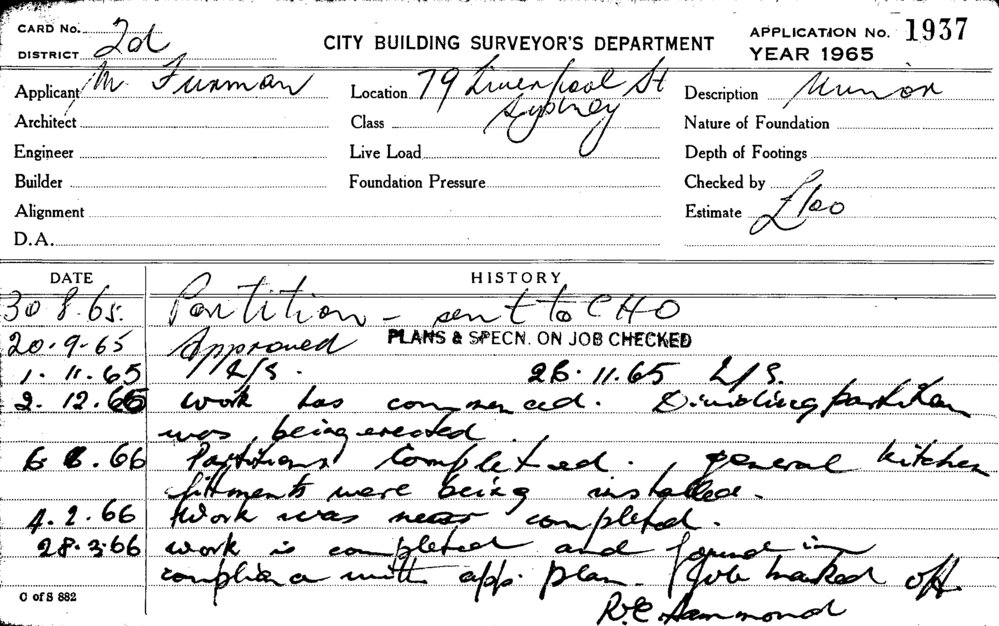 CARD No. 2d
DISTRICT
CITY BUILDING SURVEYOR'S DEPARTMENT
APPLICATION No. 1937
YEAR 1965
Applicant M. Furman
Location 79 Liverpool St
Sydney
Description Minor
Architect
Class
Nature of Foundation
Engineer
Live Load
Depth of Footings
Builder
Foundation Pressure
Checked by
Alignment
Estimate £100
D.A.
DATE HISTORY
30 8.65. Partition - sent to CHO
20.9.65 Approved PLANS & SPECN. ON JOB CHECKED
1.11.65 L/S. 26.11.65 L/S.
2.12.65 work has commenced. Dividing partition
was being erected.
6 .66 Partitions completed. general kitchen
fittments were being installed.
4.2.66 Work was near completed.
28.3.66 work is completed and found in
compliance with app. plan. Job marked off.
R.C. Hammond
C of S 882